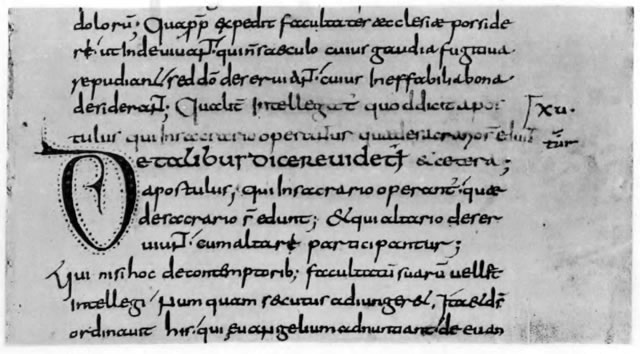 dolorū; Quapp̄ expedit facultates ecclesiae posside
re ut inde uiuant. qui in saeculo cuius gaudia fugitiua
repudiant sed dō deseruiunt. cuius ineffabilia bona
desiderant; Qualit̄ intellegat quod dicit apos
xu.
tulus qui in sacrario operatur quae de sacrario s̄
De talibus dicere uidet̄ & cetera;
apostulus; qui in sacrario operant̄ quae
de sacrario s̄ edunt; & qui altario deser
uiunt. cum altare participantur;
Qui nisi hoc de contemptorib; facultatū suarū uellet
intellegi quam secutus adiungeret, Ita et dn̄s
ordinauit his qui euangelium adnuntiant de euan